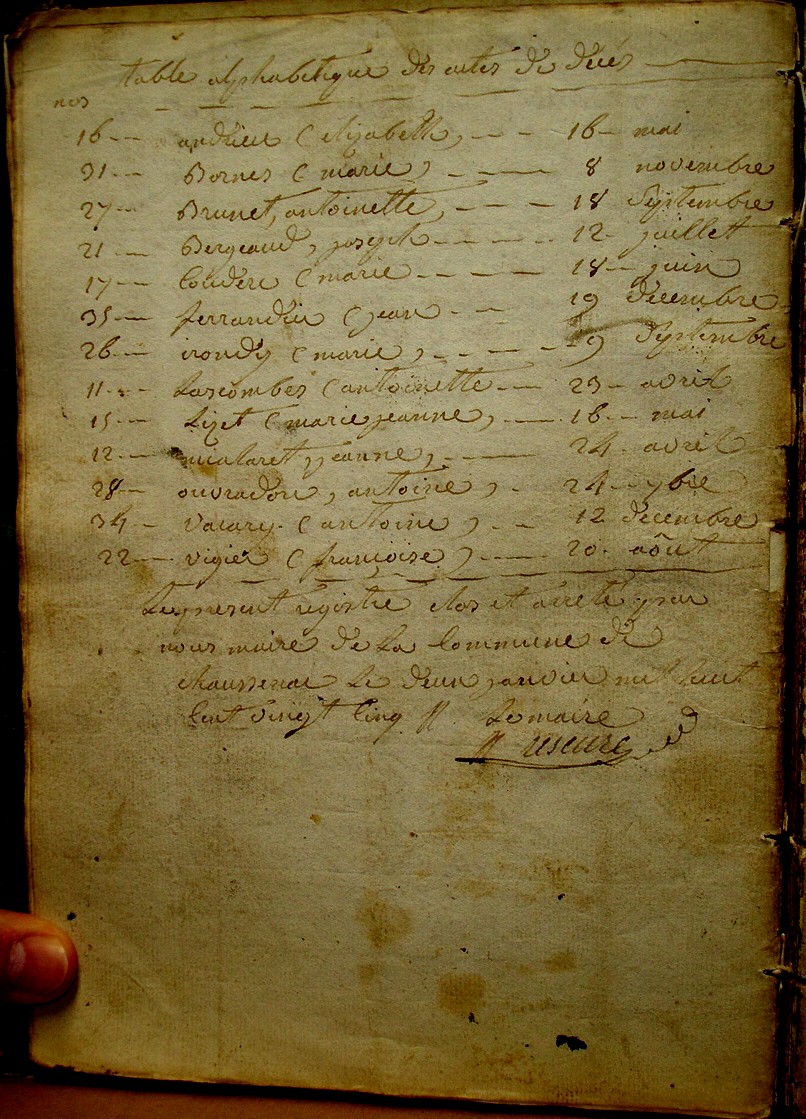 table alphabetique des actes de décés
nos
16 andrieu (elizabeth) 16 mai
31 Bornes (marie) 8 novembre
27 Brunet, antoinette, 18 Septembre
21 Bergeaud, joseph 12 juillet
17 Couderc (marie 18 juin
35 ferrandie (jean 19 decembre
26 irondy (marie) 9 Septembre
11 Lascombes (antoinette 23 avril
15 Lizet (marie jeanne) 16 mai
12 malaret, jeanne, 24 avril
28 ouvradou, antoine, 24 7bre
34 vacary (antoine) 12 decembre
22 vigier (françoise) 20 août
Le present registre clos et arreté par
nous maire de La Commune de
chaussenac Le deux janvier mil huit
Cent vingt Cinq Le maire